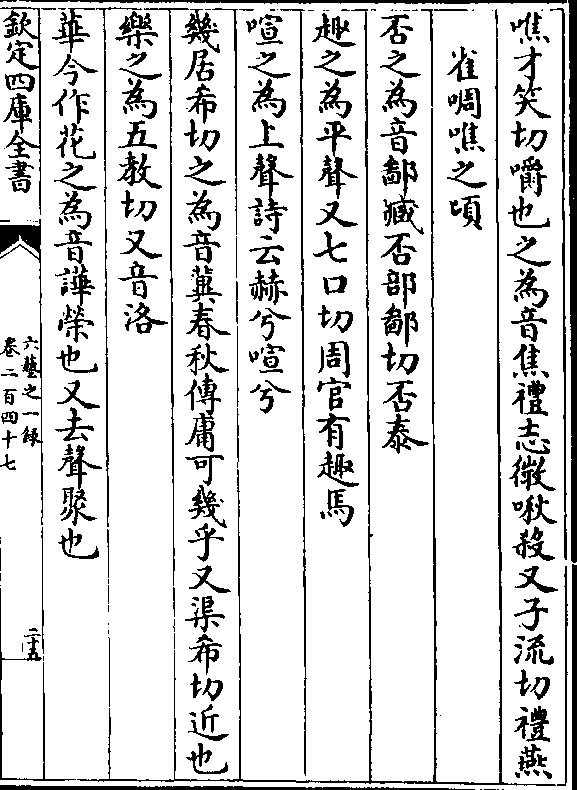 噍才笑切嚼也之為音焦禮志微噍殺又子流切禮燕
雀啁噍之頃
否之為音鄙臧否部鄙切否泰
趣之為平聲又七口切周官有趣馬
喧之為上聲詩云赫兮喧兮
幾居希切之為音冀春秋傳庸可幾乎又渠希切近也
樂之為五教切又音洛
華今作花之為音譁榮也又去聲聚也
欽定四庫全書
六藝之一録
卷二百四十七
二十五